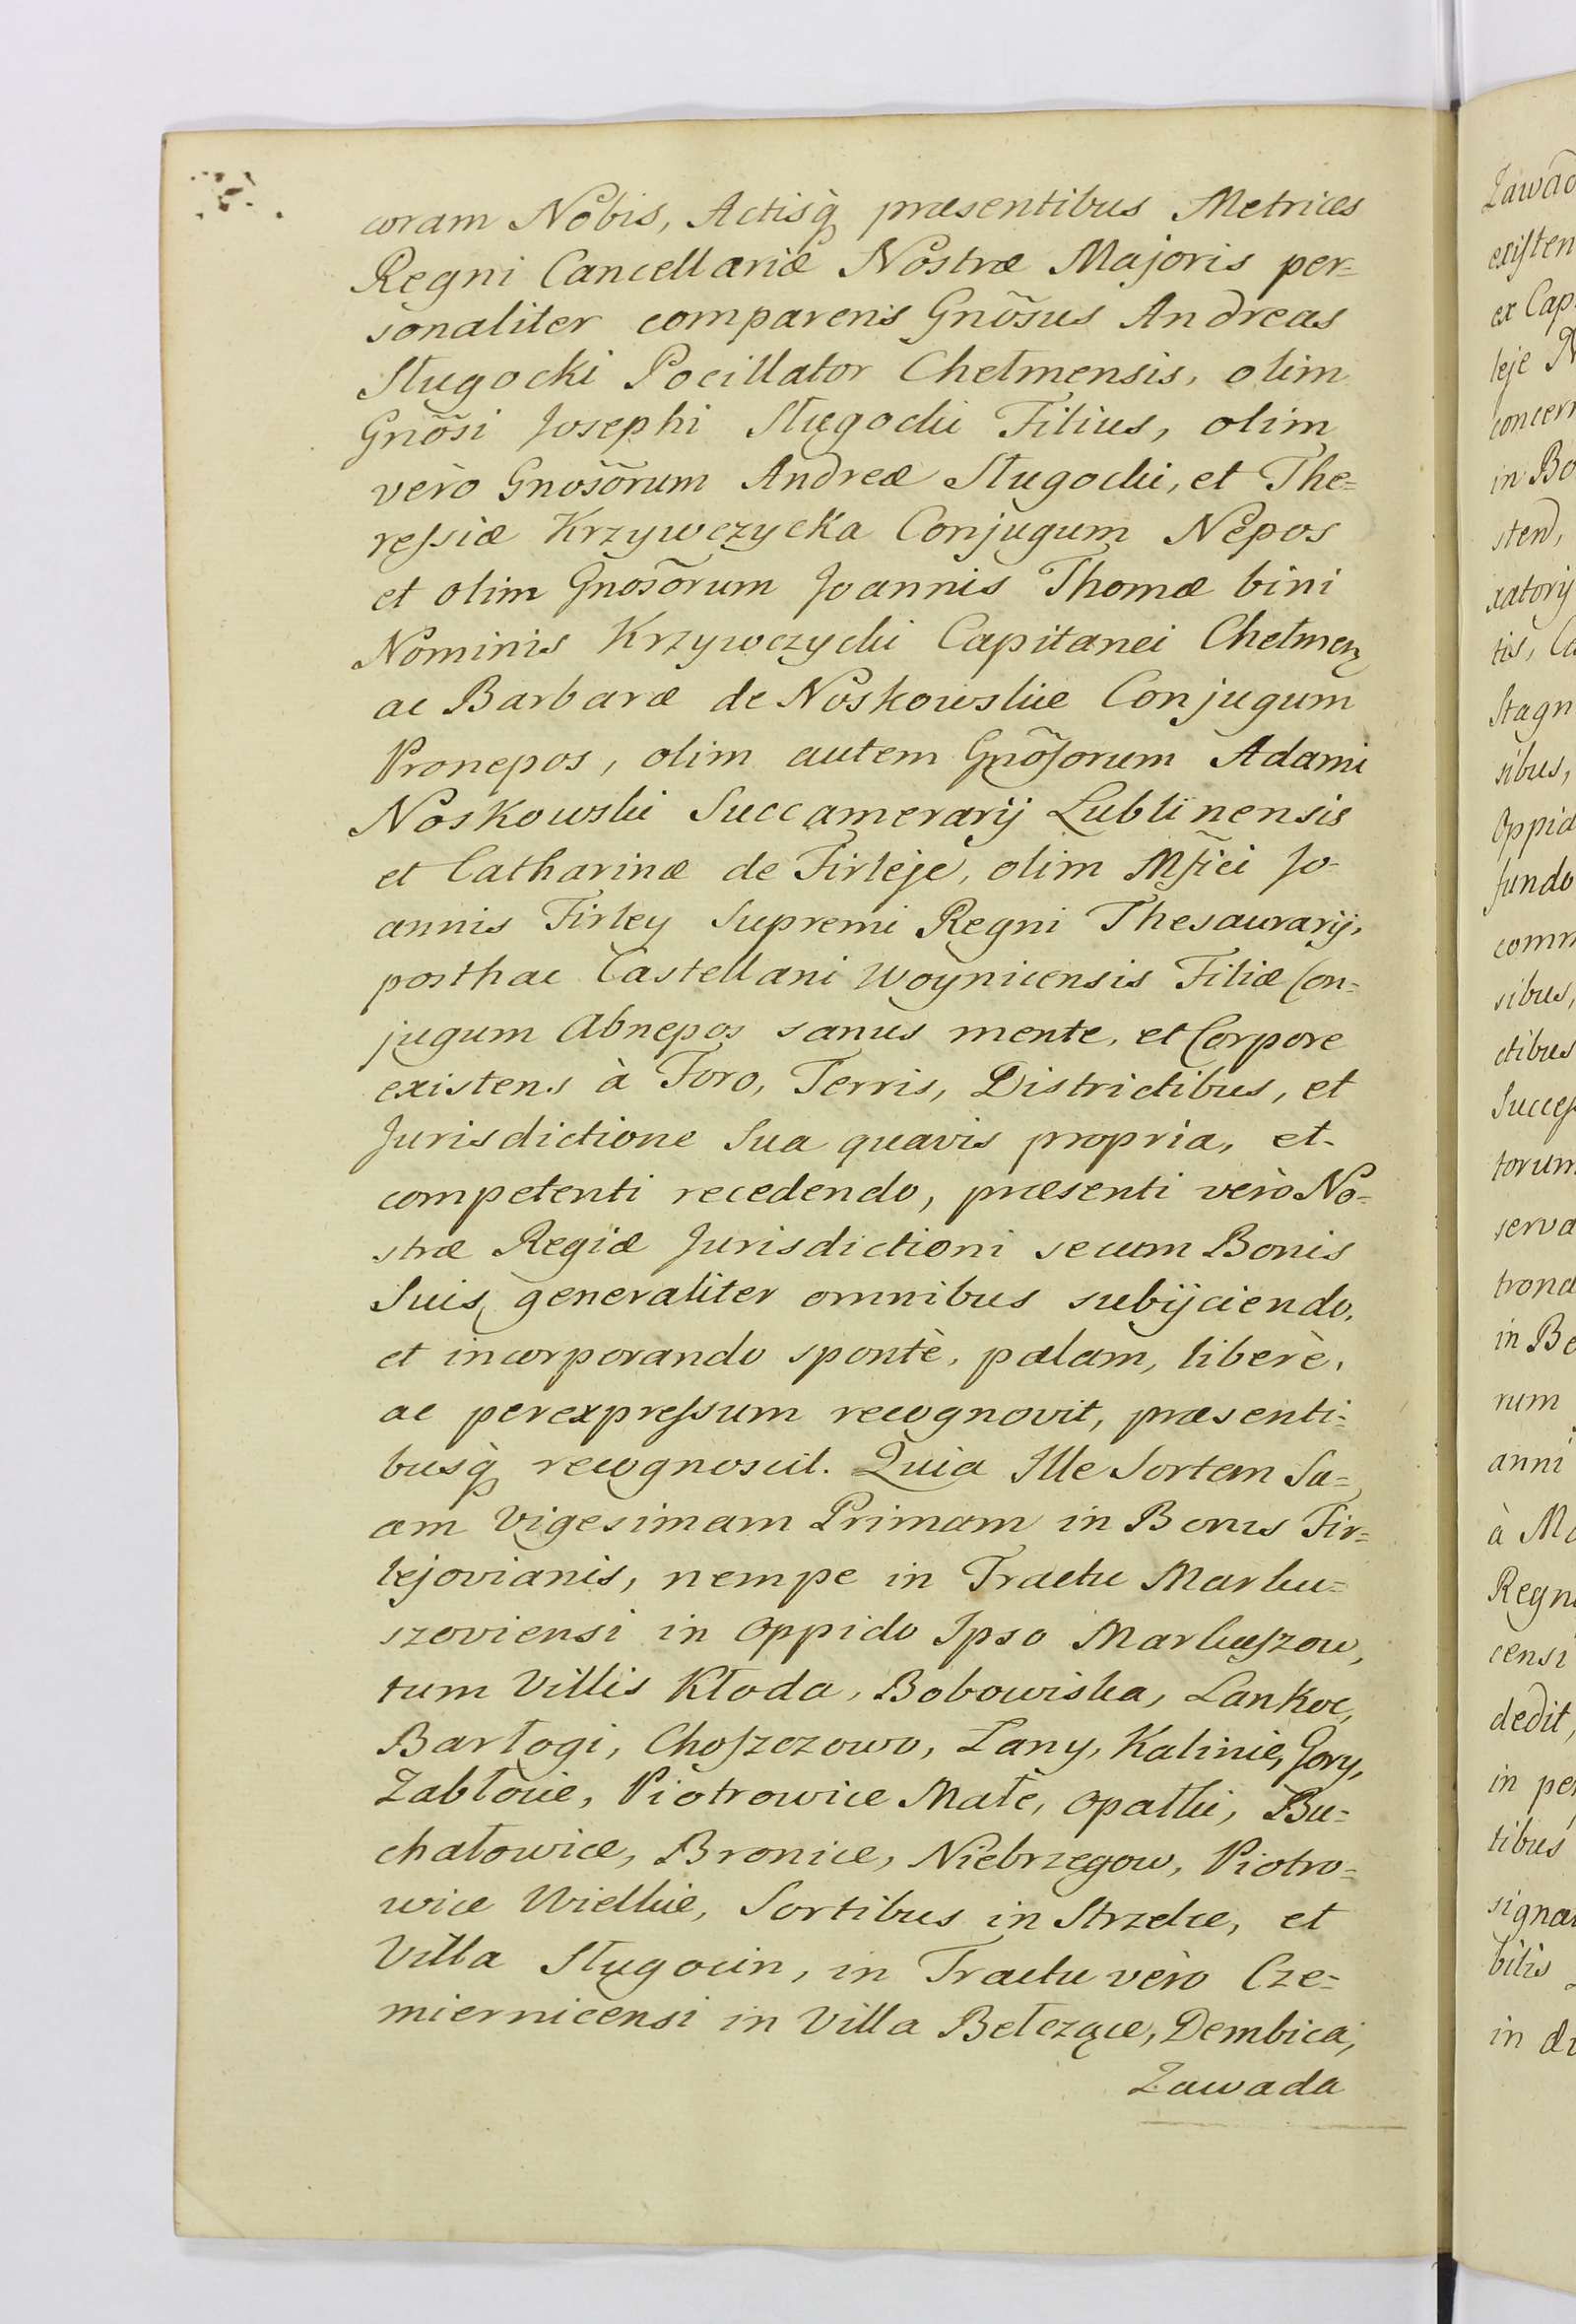 coram Nobis, Actisq̀ præsentibus Metrices
Regni Cancellariæ Nostræ Majoris per=
sonaliter comparens Gnõsus Andreas
Sługocki Pocillator Chełmensis, olim
Gnõsi Josephi Sługocki Filius, olim
verò Gnosõrum Andreæ Sługocki, et The=
reſsiæ Krzywczycka Conjugum Nepos
et olim Gnosõrum Joannis Thomæ bini
Nominis Krzywczycki Capitanei Chełmen
ac Barbaræ de Noskowskie Conjugum
Pronepos, olim autem Gnõſorum Adami
Noskowski Succamerarij Lublinensis
et Catharinæ de Firleje, olim Mf̃ici Jo-
annis Firley Supremi Regni Thesaurarij,
posthac Castellani Woynicensis Filiæ Con=
jugum Abnepos sanus mente, et Corpore
existens à Foro, Terris, Districtibus, et
Jurisdictione Sua quavis propria, et
competenti recedendo, præsenti verò No=
stræ Regiæ Jurisdictioni secum Bonis
Suis generaliter omnibus subijciendo,
et incorporando spontè, palam, liberè,
ac perexpreſsum recognovit, præsenti=
busq̀ recognoscit. Quia Ille Sortem Su=
am Vigesimam Primam in Bonis Fir=
lejovianis, nempe in Tractu Marku=
szoviensi in Oppido Ipso Markuſzow,
tum Villis Kłoda, Bobowiska, Lankoc,
Barłogi, Choſzczowo, Łany, Kalinie, Gory,
Zabłocie, Piotrowice Małe, Opatki, Bu=
chałowice, Bronice, Niebrzegow, Piotro=
wice Wielkie, Sortibus in Strzelce, et
Villa Sługocin, in Tractu verò Cze=
miernicensi in Villa Bełczące, Dembica,
Zawada